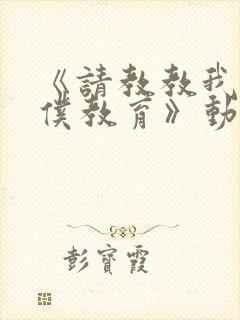 《請教教我
僕教育》動
彭寶霞